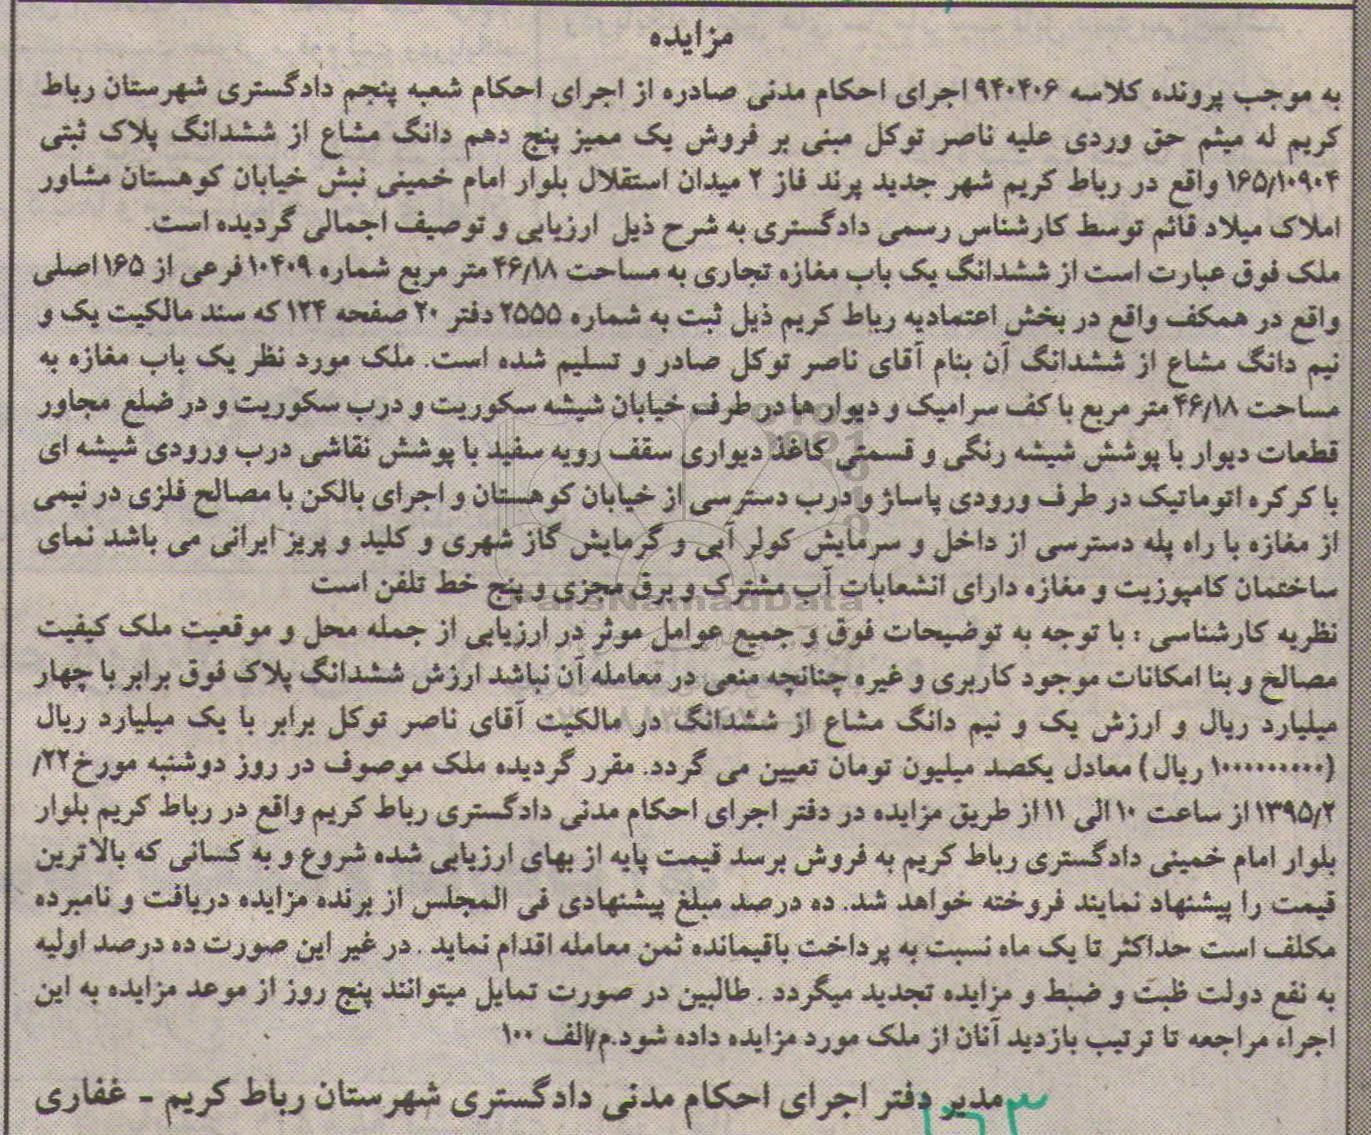 مزایده
به موجب پرونده کلاسه ۹۴۰۴۰۶ اجرای احکام مدنی صادره از اجرای احکام شعبه پنجم دادگستری شهرستان رباط
کریم له میثم حق وردی علیه ناصر توکل مبنی بر فروش یک ممیز پنج دهم دانگ مشاع از ششدانگ پلاک ثبتی
۱۶۵/۱۰۹۰۴ واقع در رباط کریم شهر جدید پرند فاز ۲ میدان استقلال بلوار امام خمینی نبش خیابان کوهستان مشاور
املاک میلاد قائم توسط کارشناس رسمی دادگستری به شرح ذیل ارزیابی و توصیف اجمالی گردیده است.
ملک فوق عبارت است از ششدانگ یک باب مغازه تجاری به مساحت ۴۶/۱۸ متر مربع شماره ۱۰۴۰۹ فرعی از ۱۶۵ اصلی
واقع در همکف واقع در بخش اعتمادیه ریاط کریم ذیل ثبت به شماره ۲۵۵۵ دفتر ۲۰ صفحه ۱۲۴ که سند مالکیت یک و
نیم دانگ مشاع از ششدانگ آن بنام آقای ناصر توکل صادر و تسلیم شده است. ملک مورد نظر یک باب مغازه به
مساحت ۴۶/۱۸ متر مربع با کف سرامیک و دیوارها در طرف خیابان شیشه سکوریت و درب سکوریت و در ضلع مجاور
قطعات دیوار با پوشش شیشه رنگی و قسمتی کاغذ دیواری سقف رویه سفید با پوشش نقاشی درب ورودی شیشه ای
با کرکره اتوماتیک در طرف ورودی پاساژ و درب دسترسی از خیابان کوهستان و اجرای بالکن با مصالح فلزی در نیمی
از مغازه با راه پله دسترسی از داخل و سرمایش کولر آبی و گرمایش گاز شهری و کلید و پریز ایرانی می باشد نمای
ساختمان کامپوزیت و مغازه دارای انشعابات آب مشترک و برق مجزی و پنج خط تلفن است
نظریه کارشناسی : با توجه به توضیحات فوق و جمیع عوامل موثر در ارزیابی از جمله محل و موقعیت ملک کیفیت
مصالح و بنا امکانات موجود کاربری و غیره چنانچه منعی در معامله آن نباشد ارزش ششدانگ پلاک فوق برابر با چهار
میلیارد ریال و ارزش یک و نیم دانگ مشاع از ششدانگ در مالکیت آقای ناصر توکل برابر با یک میلیارد ریال
(۱۰۰۰۰۰۰۰۰۰ ریال) معادل یکصد میلیون تومان تعیین می گردد. مقرر گردیده ملک موصوف در روز دوشنبه مورخ ۲۲/
۱۳۹۵/۲ از ساعت ۱۰ الی ۱۱ از طریق مزایده در دفتر اجرای احکام مدنی دادگستری رباط کریم واقع در رباط کریم بلوار
بلوار امام خمینی دادگستری رباط کریم به فروش برسد قیمت پایه از بهای ارزیابی شده شروع و به کسانی که بالاترین
قیمت را پیشنهاد نمایند فروخته خواهد شد. ده درصد مبلغ پیشنهادی فی المجلس از برنده مزایده دریافت و نامبرده
مکلف است حداکثر تا یک ماه نسبت به پرداخت باقیمانده ثمن معامله اقدام نماید . در غیر این صورت ده درصد اولیه
به نفع دولت ظبت و ضبط و مزایده تجدید میگردد . طالبین در صورت تمایل میتوانند پنج روز از موعد مزایده به این
اجراء مراجعه تا ترتیب بازدید آنان از ملک مورد مزایده داده شود.م/الف ۱۰۰
مدیر دفتر اجرای احکام مدنی دادگستری شهرستان رباط کریم - غفاری
ParsNamadData